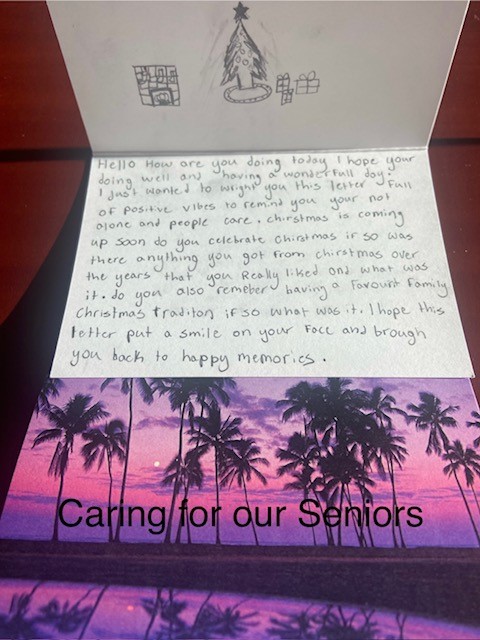 Hello How are you doing today I hope your
doing well and having a wonderfull day.
I Just wanted to wright you this letter Full
of positive vibes to remind you your not
alone and people care. chirstmas is coming
up soon do you celebrate Christmas if so was
there anything you got from chirstmas over
the years that you Really liked and what was
it. do you also remeber having a favourit family
Christmas traditon if so what was it. I hope this
letter put a smile on your Face and brough
you back to happy memories.
Caring for our Seniors